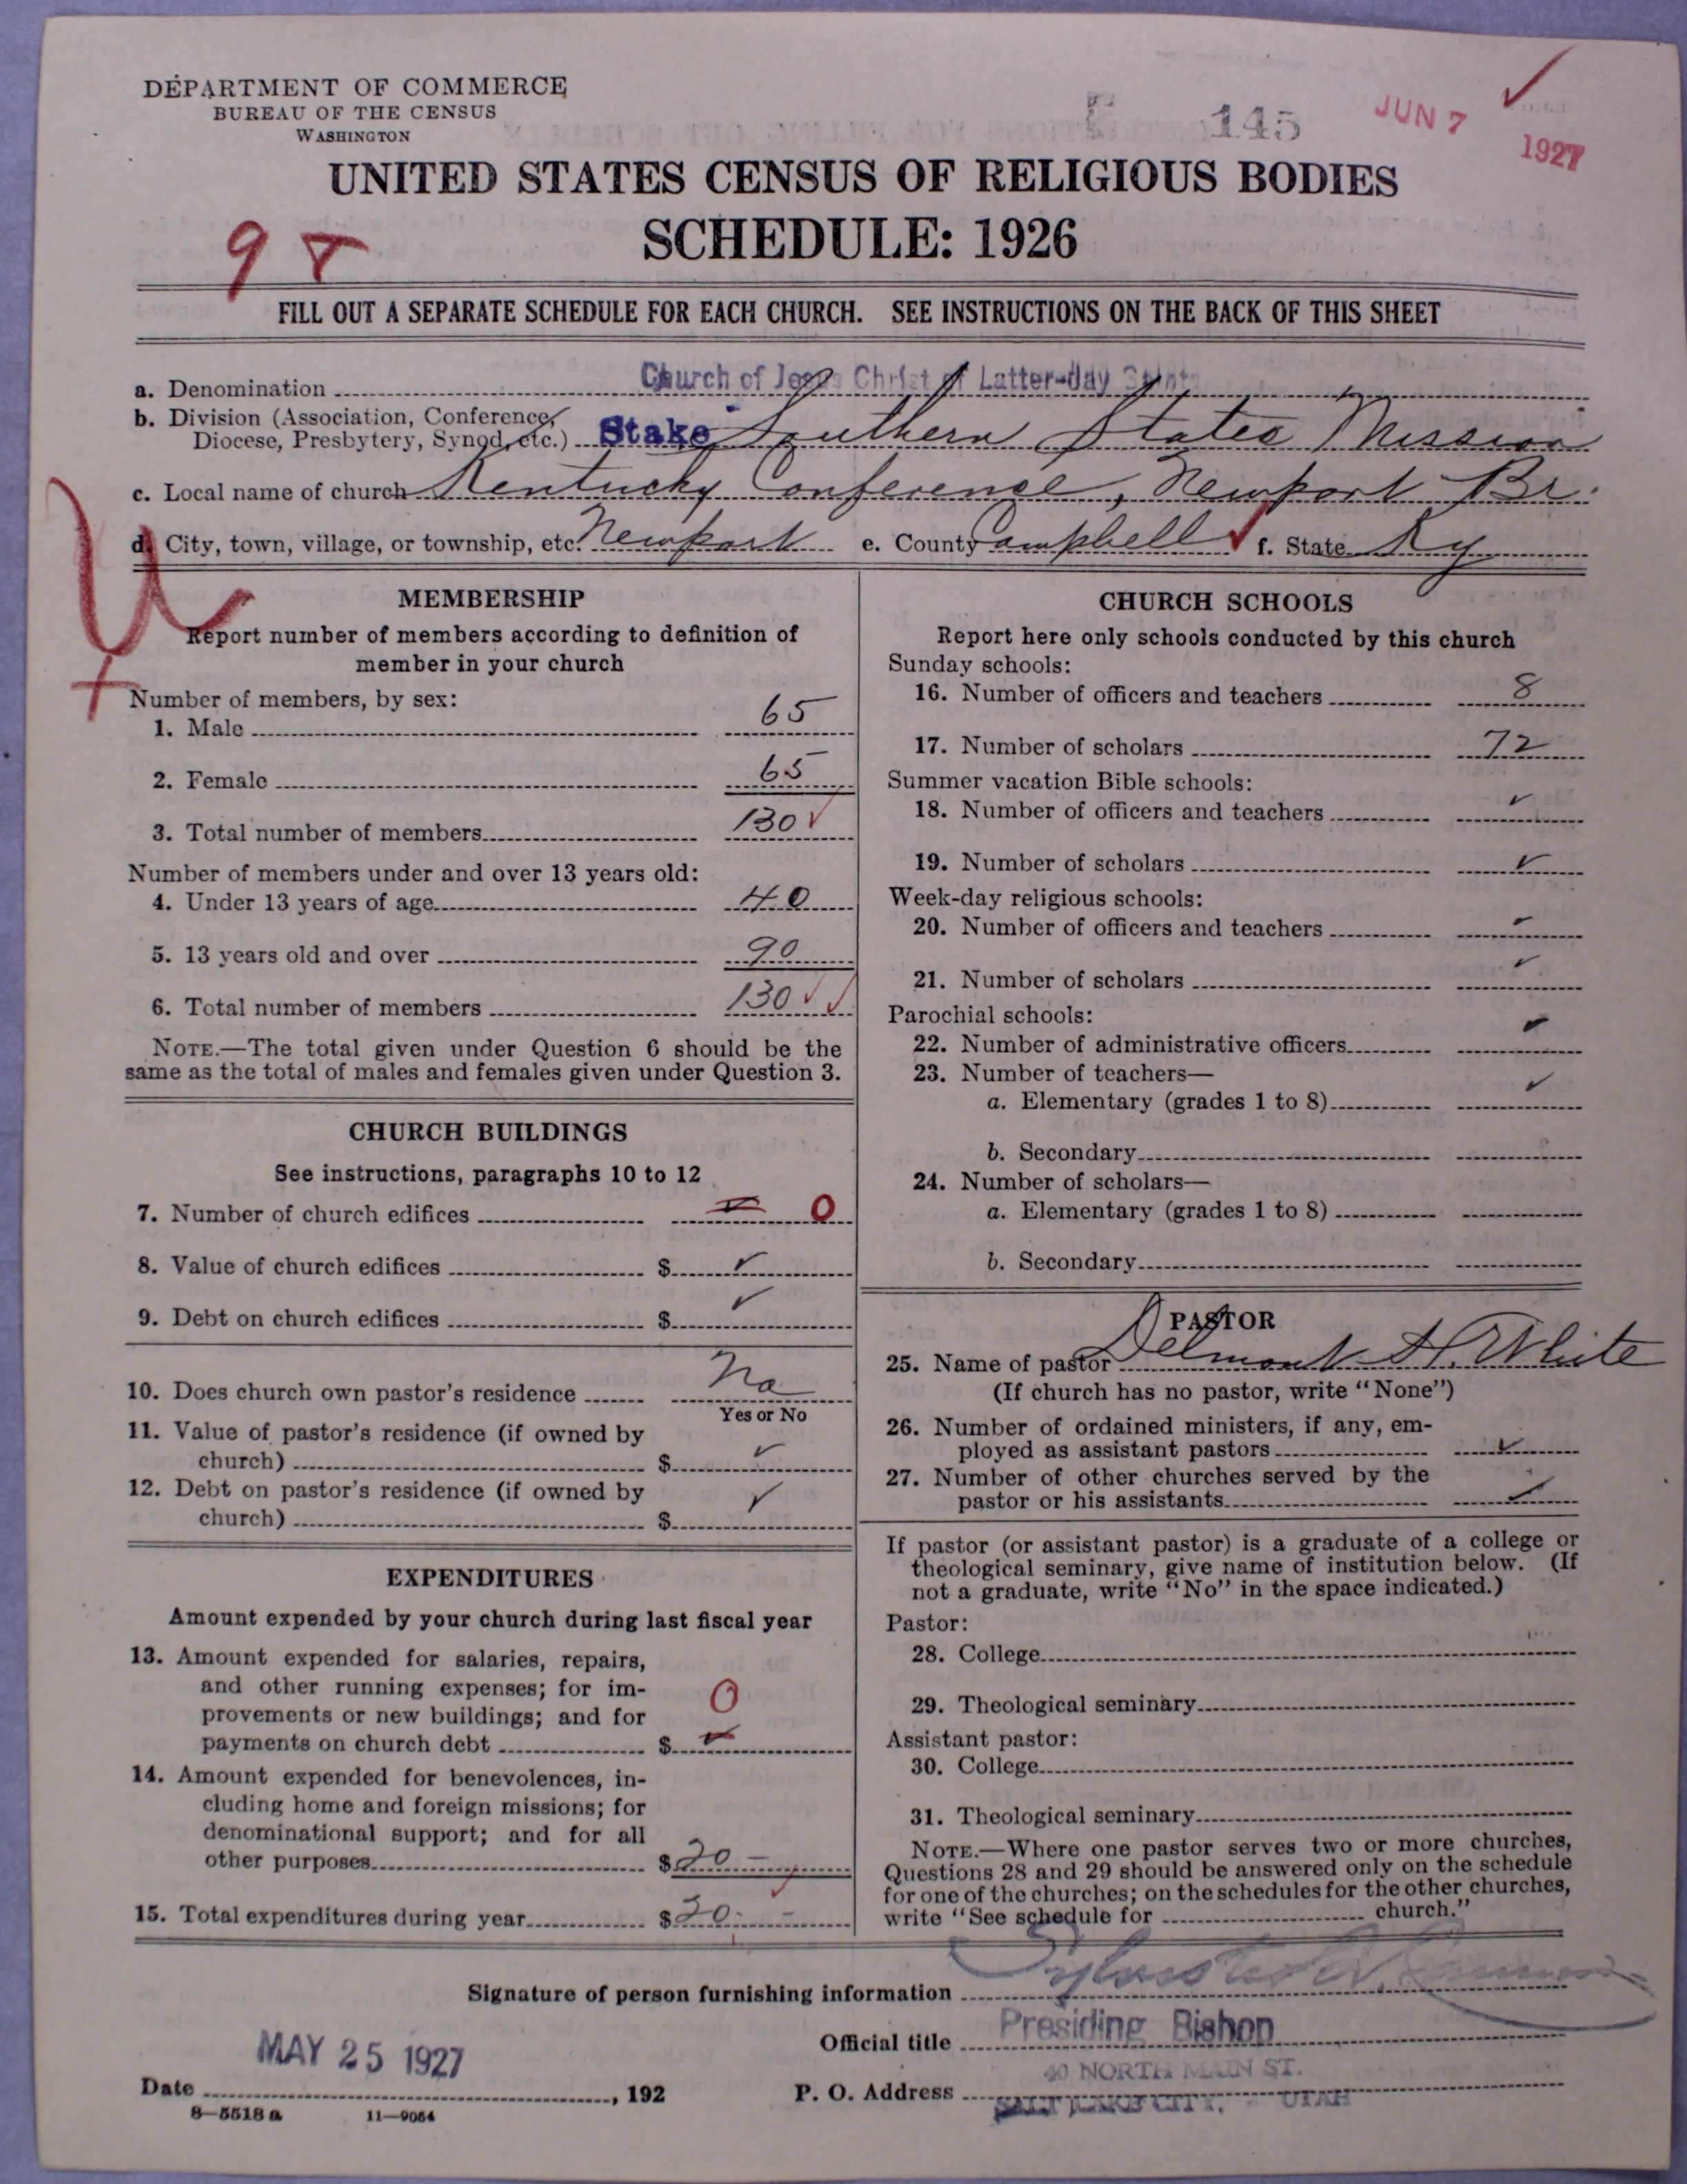 DEPARTMENT OF COMMERCE
BUREAU OF THE CENSUS
WASHINGTON
145
JUN 7 1927
UNITED STATES CENSUS OF RELIGIOUS BODIES
SCHEDULE: 1926
9
FILL OUT A SEPARATE SCHEDULE FOR EACH CHURCH. SEE INSTRUCTIONS ON THE BACK OF THIS SHEET
a. Denomination Church of Jesus Christ of Latter-day Saints
b. Division (Association, Conference,
Diocese, Presbytery, Synod, etc.) Stake Southern States Mission
c. Local name of church Kentucky Conference, Newport Br.
d. City, town, village, or township, etc. Newport e. County Campbell ✓ f. State Ky
MEMBERSHIP
Report number of members according to definition of
member in your church
Number of members, by sex:
1. Male 65
2. Female 65
3. Total number of members 130 ✓
Number of members under and over 13 years old:
4. Under 13 years of age 40
5. 13 years old and over 90
6. Total number of members 130 ✓ ✓
NOTE.—The total given under Question 6 should be the
same as the total of males and females given under Question 3.
CHURCH BUILDINGS
See instructions, paragraphs 10 to 12
7. Number of church edifices 0
8. Value of church edifices $ ✓
9. Debt on church edifices $ ✓
10. Does church own pastor's residence No
Yes or No
11. Value of pastor's residence (if owned by
church) $ ✓
12. Debt on pastor's residence (if owned by
church) $ ✓
EXPENDITURES
Amount expended by your church during last fiscal year
13. Amount expended for salaries, repairs,
and other running expenses; for im-
provements or new buildings; and for
payments on church debt $ ✓ 0
14. Amount expended for benevolences, in-
cluding home and foreign missions; for
denominational support; and for all
other purposes $ 20 —
15. Total expenditures during year $ 20. —
CHURCH SCHOOLS
Report here only schools conducted by this church
Sunday schools:
16. Number of officers and teachers 8
17. Number of scholars 72
Summer vacation Bible schools:
18. Number of officers and teachers ✓
19. Number of scholars ✓
Week-day religious schools:
20. Number of officers and teachers ✓
21. Number of scholars ✓
Parochial schools:
22. Number of administrative officers ✓
23. Number of teachers—
a. Elementary (grades 1 to 8) ✓
b. Secondary
24. Number of scholars—
a. Elementary (grades 1 to 8)
b. Secondary
PASTOR
25. Name of pastor Delmont H. White
(If church has no pastor, write "None")
26. Number of ordained ministers, if any, em-
ployed as assistant pastors ✓
27. Number of other churches served by the
pastor or his assistants ✓
If pastor (or assistant pastor) is a graduate of a college or
theological seminary, give name of institution below. (If
not a graduate, write "No" in the space indicated.)
Pastor:
28. College
29. Theological seminary
Assistant pastor:
30. College
31. Theological seminary
NOTE.—Where one pastor serves two or more churches,
Questions 28 and 29 should be answered only on the schedule
for one of the churches; on the schedules for the other churches,
write "See schedule for church."
Signature of person furnishing information Sylvester Q. Cannon
Official title Presiding Bishop
MAY 25 1927
Date , 192
P. O. Address 40 NORTH MAIN ST.
SALT LAKE CITY, - UTAH
8—5518 a 11—9054